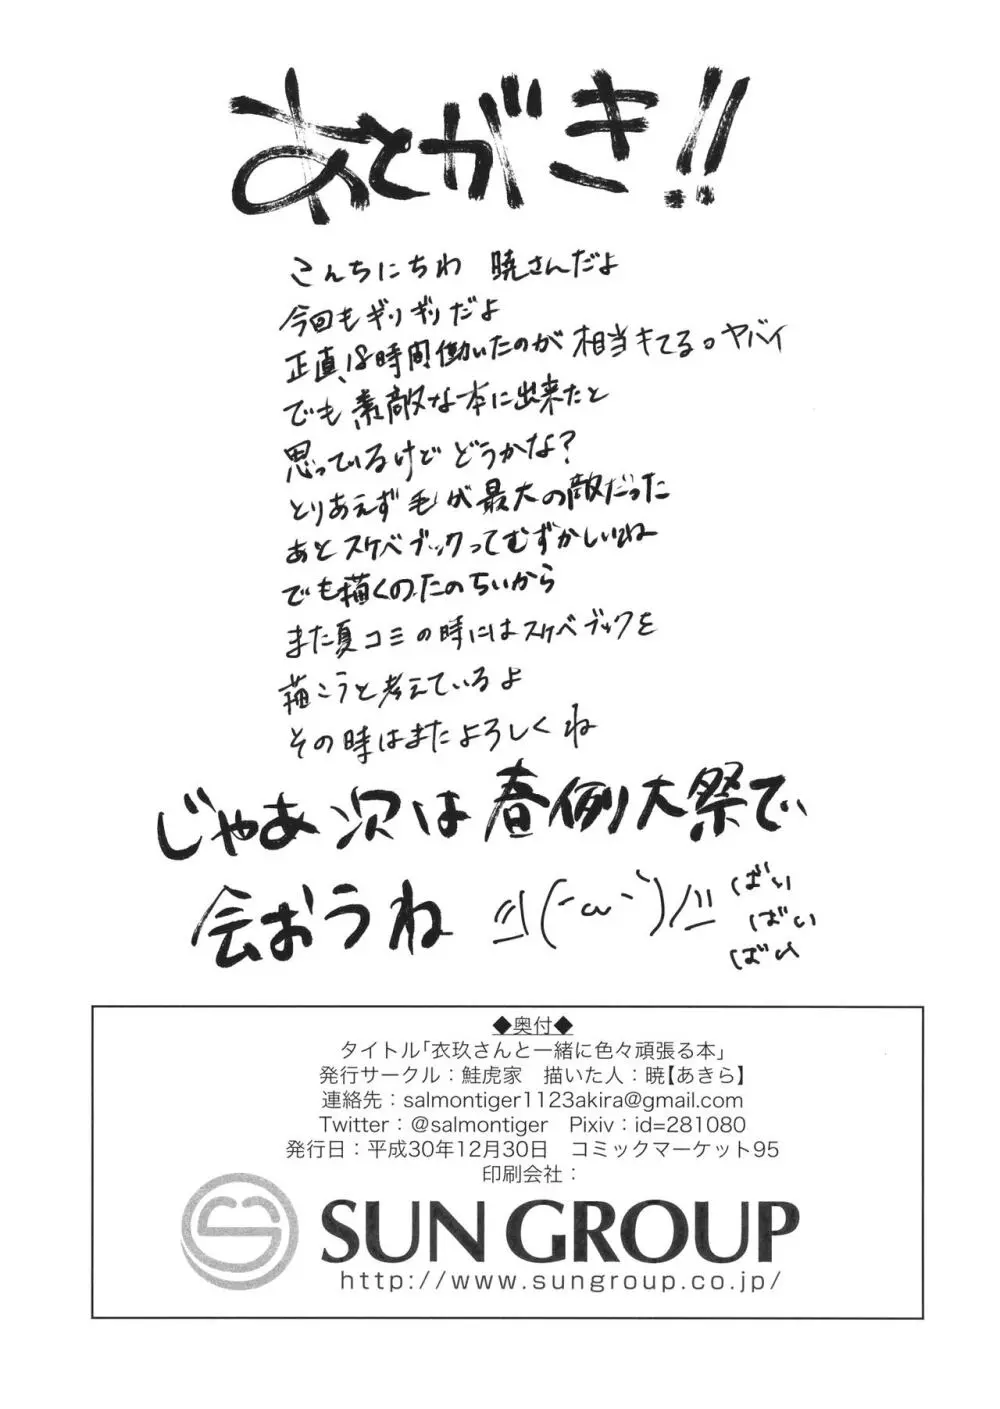 あとがき!!
こんちにちわ 暁さんだよ
今回もギリギリだよ
正直、18時間働いたのが相当キてる。ヤバイ
でも素敵な本に出来たと
思っているけどどうかな?
とりあえず毛が最大の敵だった
あとスケベブックってむずかしいね
でも描くのたのちいから
また夏コミの時にはスケベブックを
描こうと考えているよ
その時はまたよろしくね
じゃあ次は春例大祭で
会おうね ((´ω`))
ばい
ばい
ばい
◆奥付◆
タイトル「衣玖さんと一緒に色々頑張る本」
発行サークル:鮭虎家 描いた人:暁【あきら】
連絡先:salmontiger1123akira@gmail.com
Twitter:@salmontiger Pixiv:id=281080
発行日:平成30年12月30日 コミックマーケット95
印刷会社:
SUN GROUP
http://www.sungroup.co.jp/